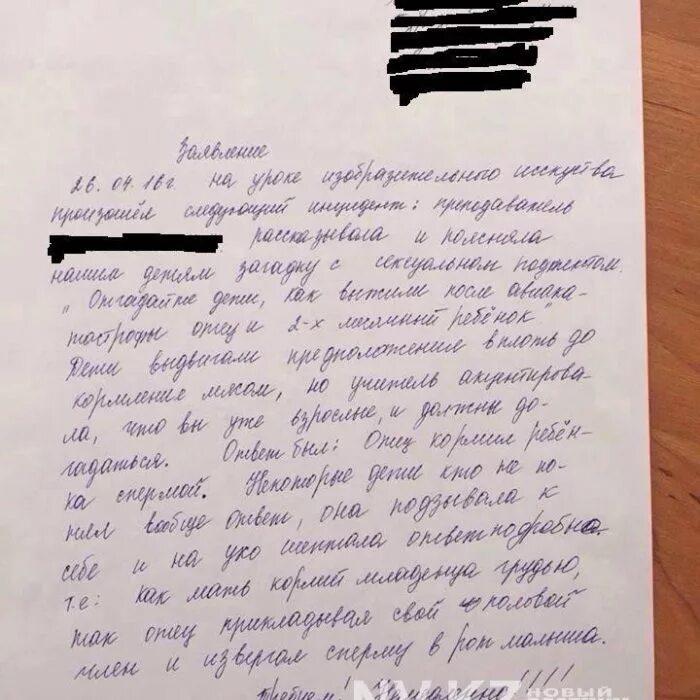 Заявление
26.04.16г. на уроке изобразительного исскуства
произошёл следующий инцидент: преподаватель
рассказывала и поясняла
нашим детям загадку с сексуальном подтекстом.
"Отгадайте дети, как выжили после авиака-
тастрофы отец и 2-х месячный ребёнок"
Дети выдвигали предположение вплоть до
кормление мясом, но учитель акцентирова-
ла, что вы уже взрослые, и должны до-
гадаться. Ответ был: Отец кормил ребён-
ка спермой. Некоторые дети кто не по-
нял вообще ответ, она подзывала к
себе и на ухо шептала ответ подробно.
т.е: как мать кормит младенца грудью,
так отец прикладывая свой половой
член и извергал сперму в рот малыша.
NV.KZ НОВЫЙ